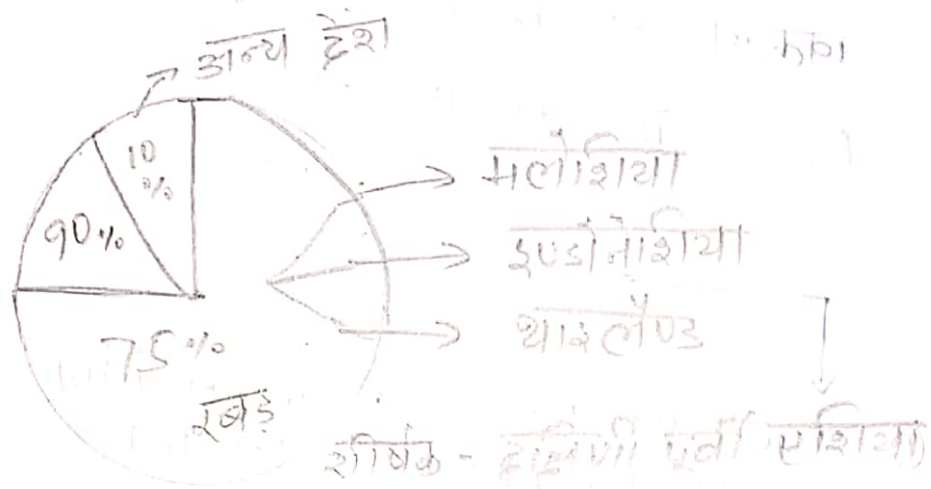 अन्य देश
10 %
90%
75%
रबड़
मलेशिया
इण्डोनेशिया
थाइलैण्ड
शीर्षक - दक्षिणी पूर्वी एशिया